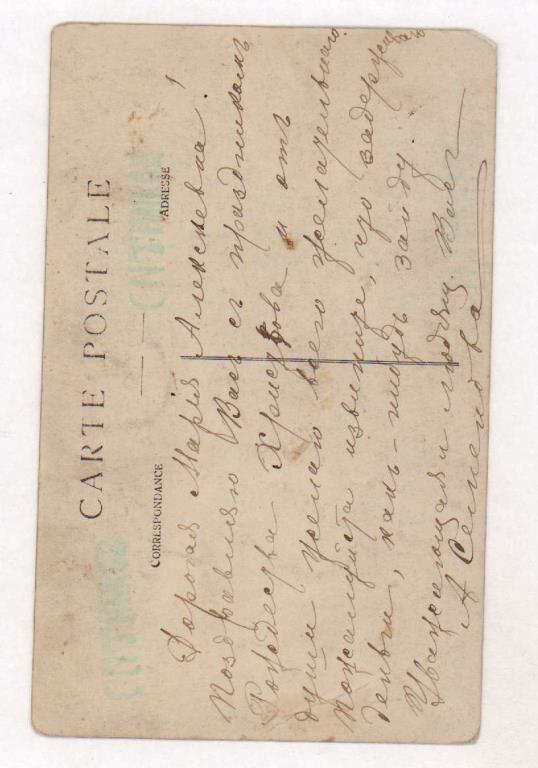 CARTE POSTALE
CORRESPONDANCE
ADRESSE
Дорогая Марія Алексеевна!
Поздравляю Васъ съ праздникомъ
Рождества Христова и отъ
души желаю всего
пожалуйста извините, что задержала
деньги, какъ-нибудь зайду.
Уважающая и любящ. Васъ
А Семенова